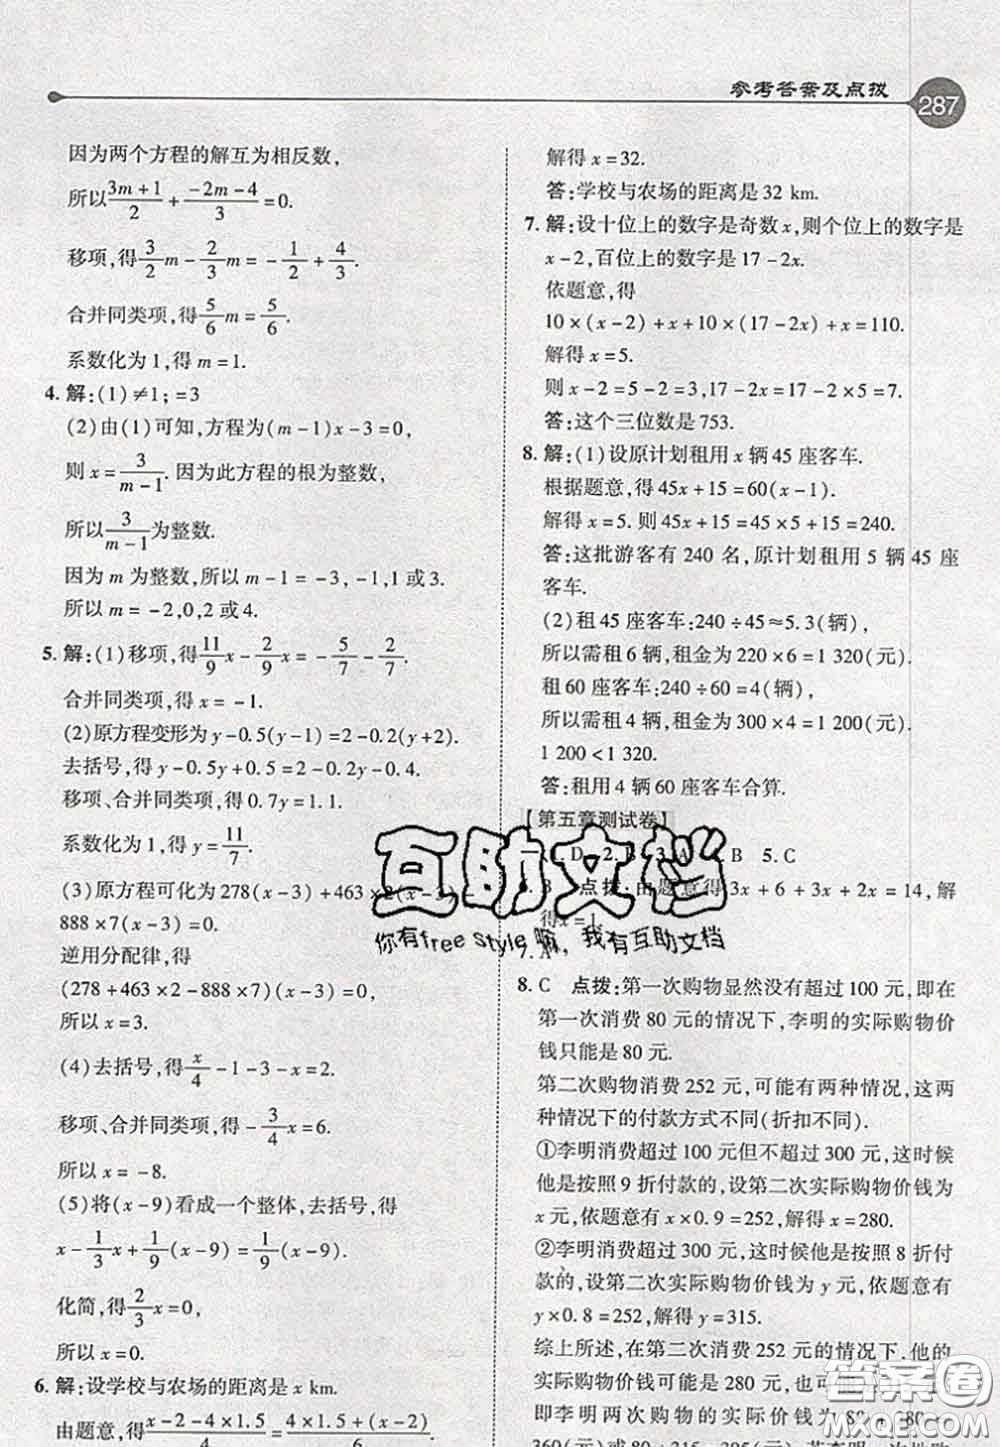 参考答案及点拨
287
因为两个方程的解互为相反数,
所以(3m+1)/2+(-2m-4)/3=0.
移项,得3/2m-2/3m=-1/2+4/3.
合并同类项,得5/6m=5/6.
系数化为1,得m=1.
4.解:(1)≠1;=3
(2)由(1)可知,方程为(m-1)x-3=0,
则x=3/(m-1).因为此方程的根为整数.
所以3/(m-1)为整数.
因为m为整数,所以m-1=-3,-1,1或3.
所以m=-2,0,2或4.
5.解:(1)移项,得11/9x-2/9x=-5/7-2/7.
合并同类项,得x=-1.
(2)原方程变形为y-0.5(y-1)=2-0.2(y+2).
去括号,得y-0.5y+0.5=2-0.2y-0.4.
移项、合并同类项,得0.7y=1.1.
系数化为1,得y=11/7.
(3)原方程可化为278(x-3)+463×2(x-3)-
888×7(x-3)=0.
逆用分配律,得
(278+463×2-888×7)(x-3)=0,
所以x=3.
(4)去括号,得x/4-1-3-x=2.
移项、合并同类项,得-3/4x=6.
所以x=-8.
(5)将(x-9)看成一个整体,去括号,得
x-1/3x+1/9(x-9)=1/9(x-9).
化简,得2/3x=0,
所以x=0.
6.解:设学校与农场的距离是x km.
由题意,得(x-2-4×1.5)/(4×1.5)=(4×1.5+(x-2))/
解得x=32.
答:学校与农场的距离是32 km.
7.解:设十位上的数字是奇数x,则个位上的数字是
x-2,百位上的数字是17-2x.
依题意,得
10×(x-2)+x+10×(17-2x)+x=110.
解得x=5.
则x-2=5-2=3,17-2x=17-2×5=7.
答:这个三位数是753.
8.解:(1)设原计划租用x辆45座客车.
根据题意,得45x+15=60(x-1).
解得x=5.则45x+15=45×5+15=240.
答:这批游客有240名,原计划租用5辆45座
客车.
(2)租45座客车:240÷45≈5.3(辆),
所以需租6辆,租金为220×6=1 320(元).
租60座客车:240÷60=4(辆),
所以需租4辆,租金为300×4=1 200(元).
1 200<1 320.
答:租用4辆60座客车合算.
【第五章测试卷】
D 2. 3.A B 5.C
点拨:由题意得3x+6+3x+2x=14,解
得x=1.
7.A
8.C 点拨:第一次购物显然没有超过100元,即在
第一次消费80元的情况下,李明的实际购物价
钱只能是80元.
第二次购物消费252元,可能有两种情况,这两
种情况下的付款方式不同(折扣不同).
①李明消费超过100元但不超过300元,这时候
他是按照9折付款的,设第二次实际购物价钱为
x元,依题意有x×0.9=252,解得x=280.
②李明消费超过300元,这时候他是按照8折付
款的,设第二次实际购物价钱为y元,依题意有
y×0.8=252,解得y=315.
综上所述,在第二次消费252元的情况下,他的
实际购物价钱可能是280元,也可能
即李明两次购物的实际价钱为80+280=
360(元)或
互助文档
你有free style嘛,我有互助文档
答案圈